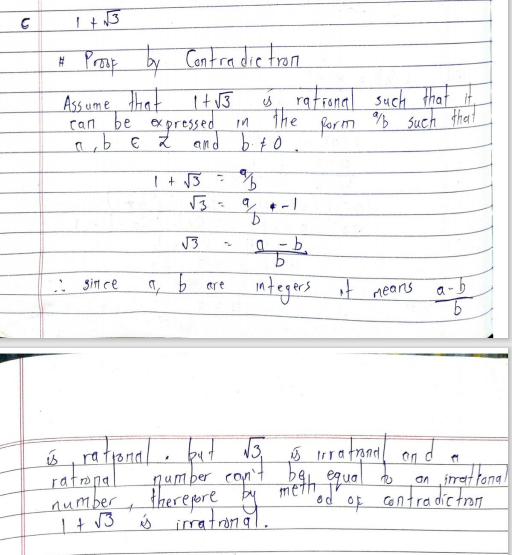 c 1 + √3
# Proof by Contradiction
Assume that 1 + √3 is rational such that it
can be expressed in the form a/b such that
a, b ∈ Z and b ≠ 0.
1 + √3 = a/b
√3 = a/b - 1
√3 = (a - b)/b
∴ since a, b are integers it means (a - b)/b
is rational. but √3 is irrational and a
rational number can't be equal to an irrational
number, therefore by method of contradiction
1 + √3 is irrational.